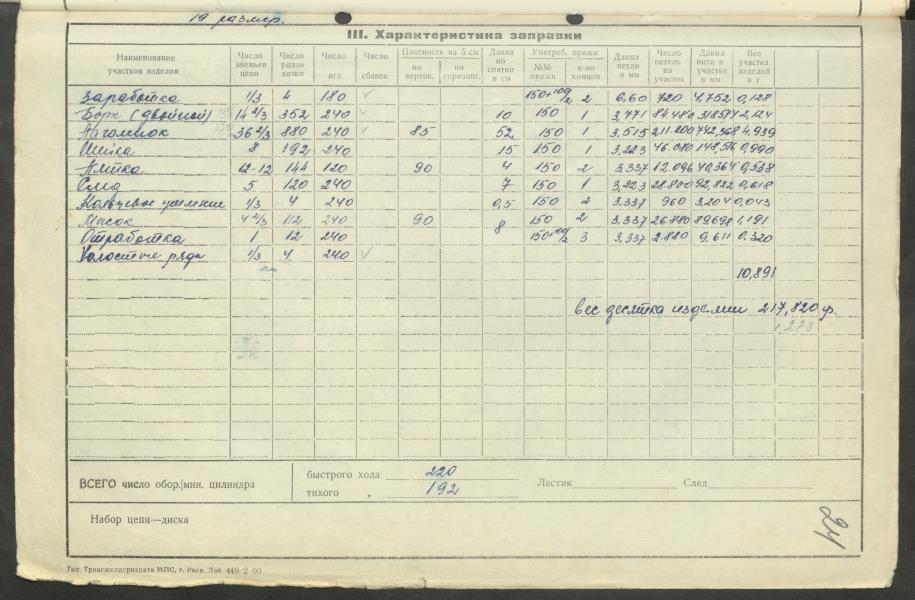 19 размер.
III. Характеристика заправки
Наименование участков изделия | Число звеньев цепи | Число рядов вязки | Число игл | Число сбавок | Плотность на 5 см по вертик. | по горизонт. | Длина по снятии в см | Употреб. пряжи №№ пряжи | к-во концов | Длина петли в мм | Число петель на участок | Длина нити в участке в мм | Вес участка изделий в г
Заработка 1/3 4 180 150+100/2 2 6,60 720 4,752 0,128
Борт (двойной) 14 2/3 352 240 10 150 1 3,771 84.480 2,124
Наголенок 36 2/3 880 240 85 52 150 1 3,515 211.200 742,368 4,939
Шейка 8 192 240 15 150 1 3,223 46.080 0,990
Пятка 12-12 144 120 90 4 150 2 3,337 12.096 40,364 0,538
След 5 120 240 7 150 1 3,223 28.800 92,822 0,618
Кольцевое усиление 1/3 4 240 0,5 150 2 3,337 960 3,204 0,043
Мысок 4 2/3 112 240 90 8 150 2 3,337 26.880 89698 1,191
Отработка 1 12 240 150+100/2 3 3,337 2.880 9,611 0,320
Холостые ряда 1/3 4 240
10,891
Вес десятка изделии 217,820 гр.
1,278
ВСЕГО число обор./мин. цилиндра
быстрого хода 220
тихого „ 192
Ластик След
Набор цепи—диска
24
Тип. Трансжелдориздата МПС, г. Рига. Зак. 449 2 00